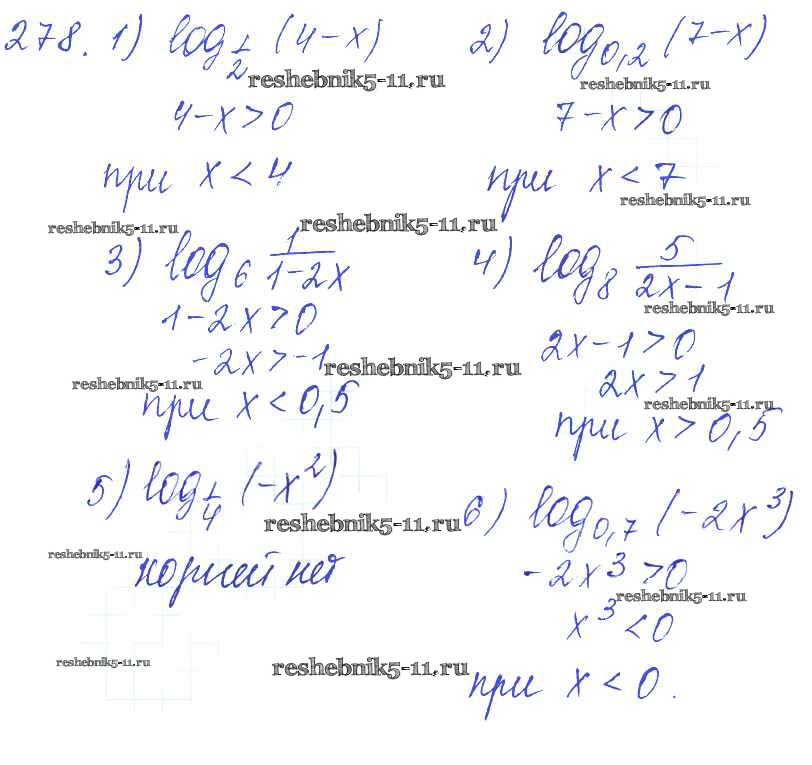 278. 1) log_{1/2} (4-x)
2) log_{0,2} (7-x)
reshebnik5-11.ru
reshebnik5-11.ru
4-x>0
7-x>0
при x<4
при x<7
reshebnik5-11.ru
reshebnik5-11.ru
reshebnik5-11.ru
3) log_6 1/(1-2x)
4) log_8 5/(2x-1)
reshebnik5-11.ru
1-2x>0
2x-1>0
-2x>-1
reshebnik5-11.ru
reshebnik5-11.ru
2x>1
reshebnik5-11.ru
при x<0,5
при x>0,5
5) log_{1/4} (-x²)
6) log_{0,7} (-2x³)
reshebnik5-11.ru
reshebnik5-11.ru
корней нет
-2x³>0
reshebnik5-11.ru
x³<0
reshebnik5-11.ru
reshebnik5-11.ru
при x<0.